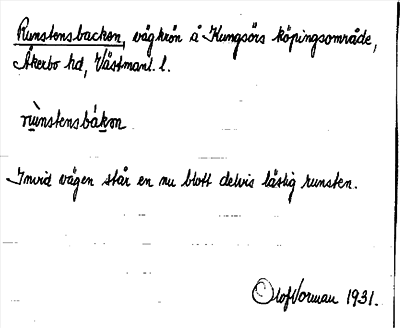 Runstensbacken, vägkrön å Kungsörs köpingsområde,
Åkerbo hd, Västmanl. l.
rùnstensbákən
Invid vägen står en nu blott delvis läslig runsten.
Olof Vorman 1931.